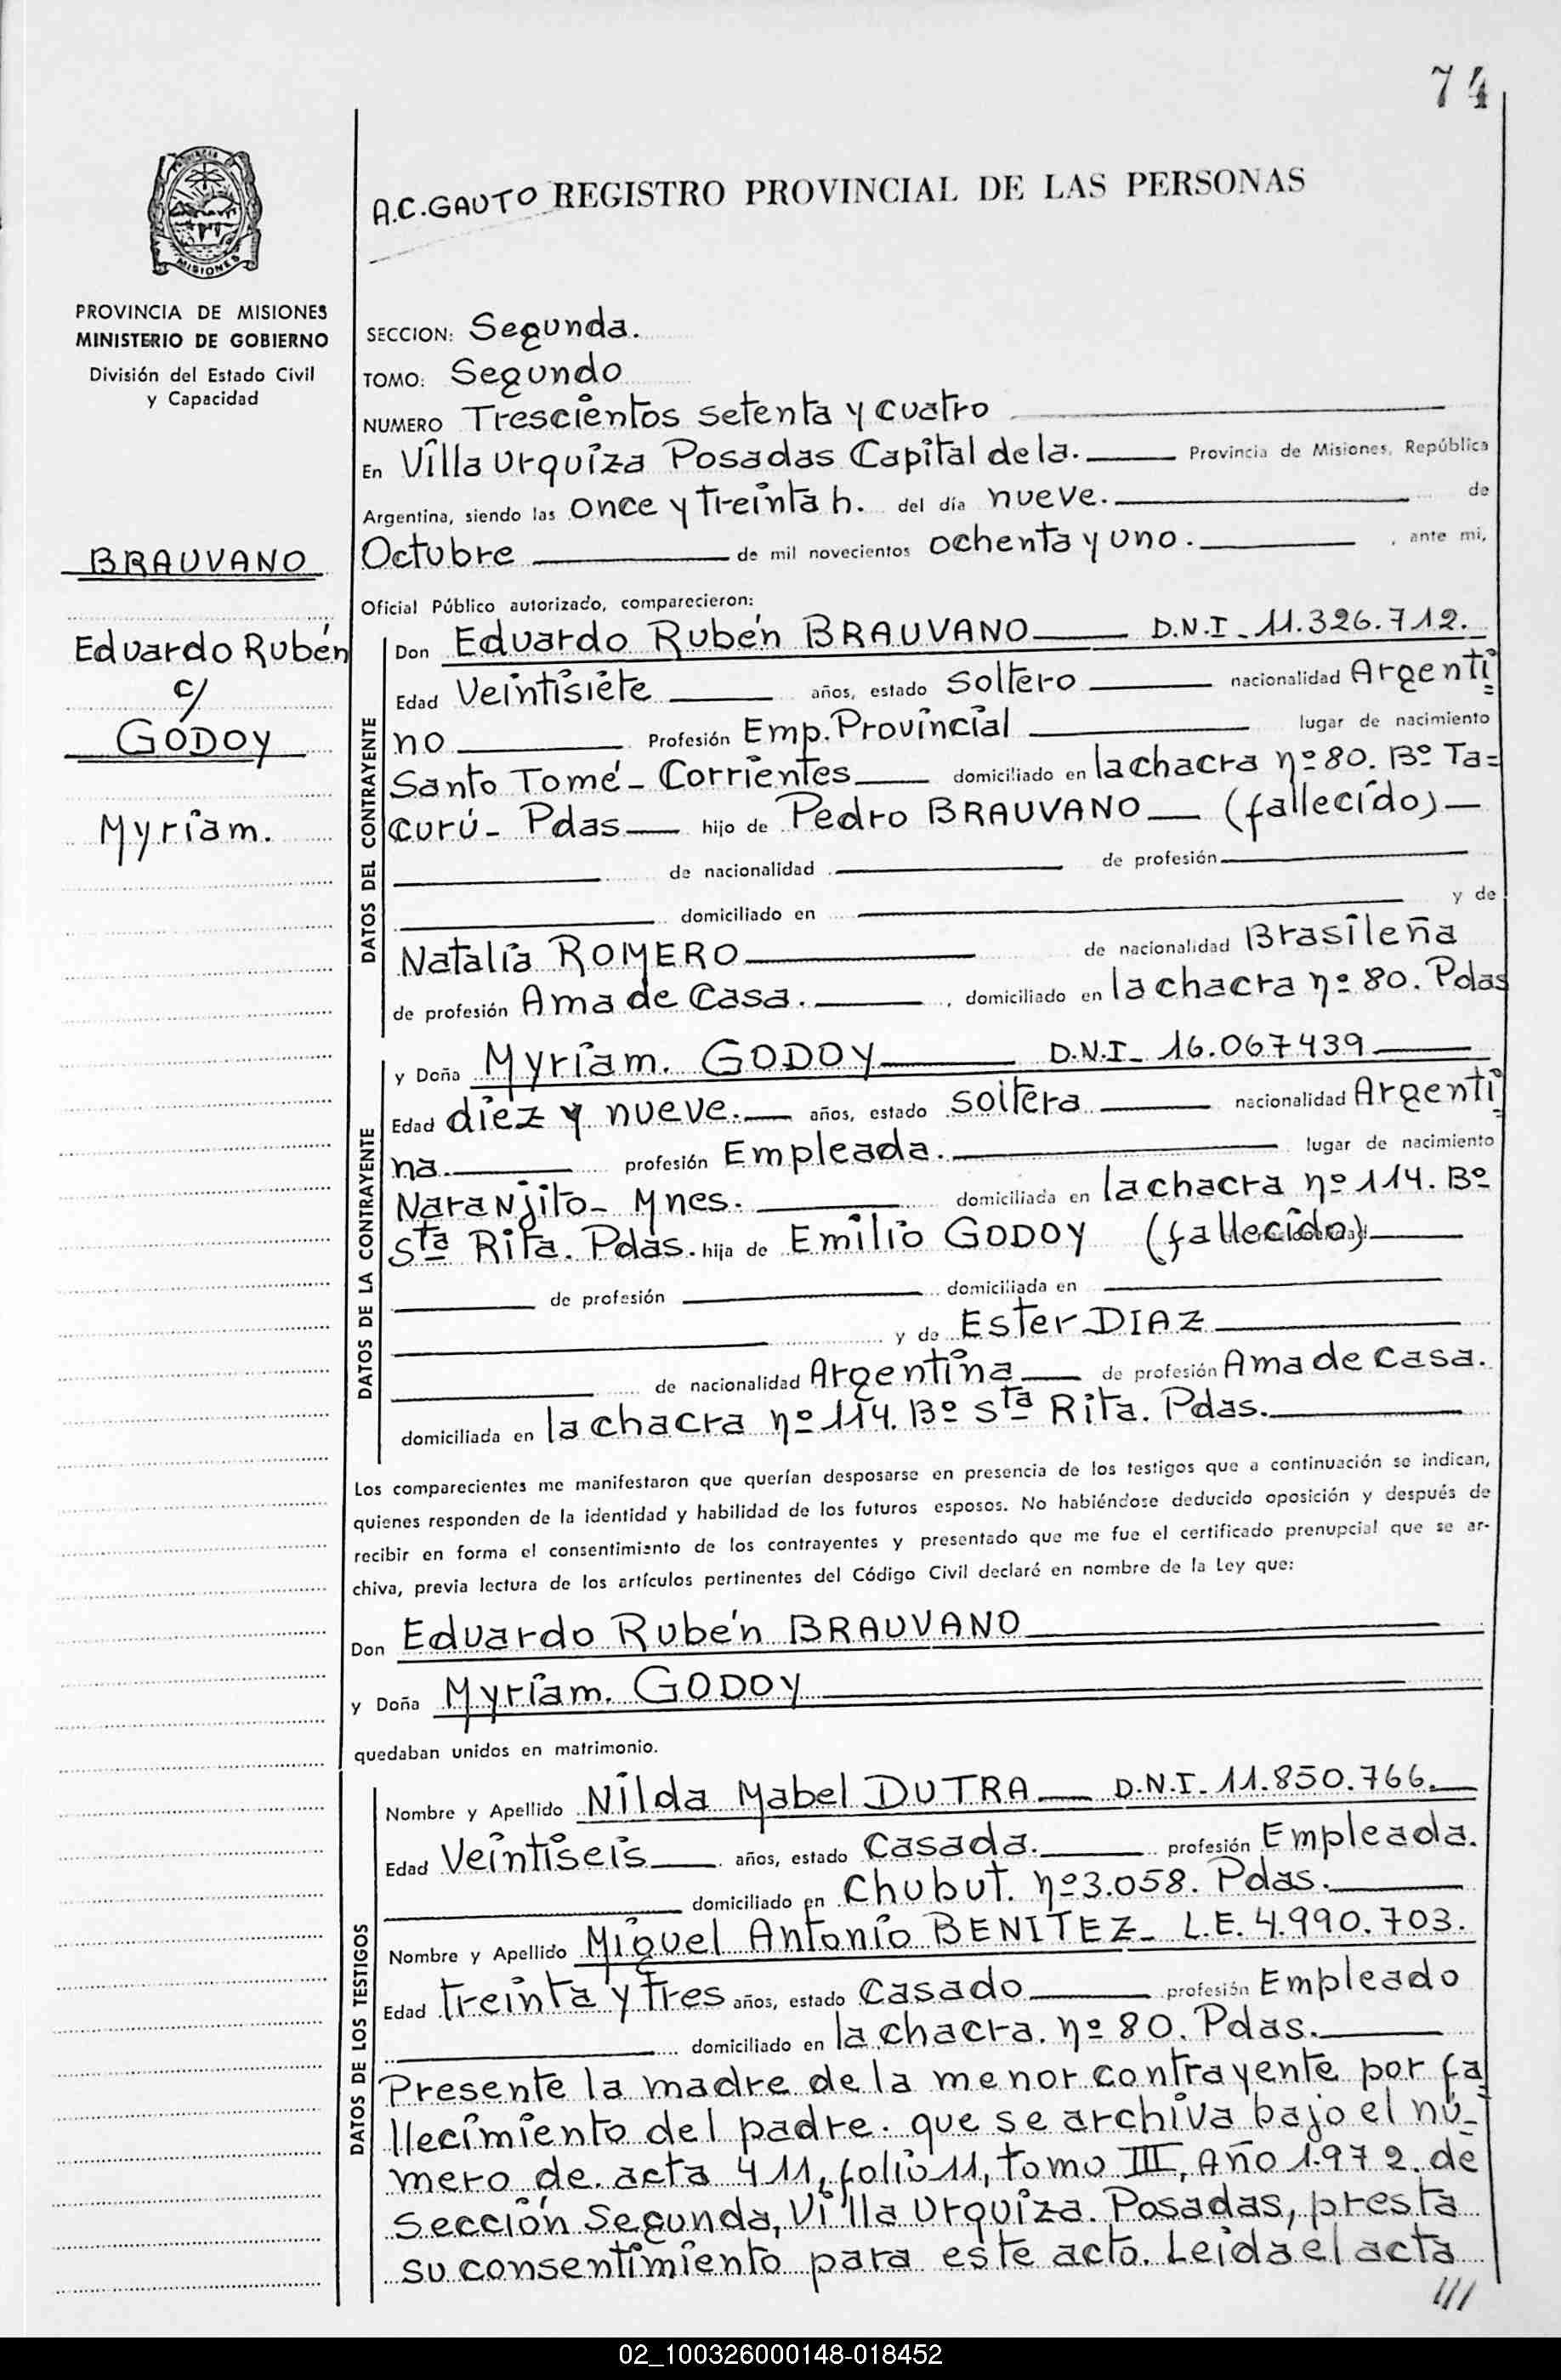 74
A.C.GAUTO REGISTRO PROVINCIAL DE LAS PERSONAS
PROVINCIA
MISIONES
PROVINCIA DE MISIONES
MINISTERIO DE GOBIERNO
División del Estado Civil
y Capacidad
BRAUVANO
Eduardo Rubén
c/
GODOY
Myriam.
SECCION: Segunda.
TOMO: Segundo
NUMERO Trescientos setenta y cuatro
En Villa Urquiza Posadas Capital de la. Provincia de Misiones, República
Argentina, siendo las once y treinta h. del día nueve. de
Octubre de mil novecientos ochenta y uno. , ante mi,
Oficial Público autorizado, comparecieron:
DATOS DEL CONTRAYENTE
Don Eduardo Rubén BRAUVANO D.N.I_ 11.326.712.
Edad Veintisiete años, estado Soltero nacionalidad Argenti=
no Profesión Emp. Provincial lugar de nacimiento
Santo Tomé - Corrientes domiciliado en la chacra nº 80. Bº Ta=
curú - Pdas hijo de Pedro BRAUVANO (fallecido)
de nacionalidad de profesión
domiciliado en y de
Natalia ROMERO de nacionalidad Brasileña
de profesión Ama de Casa. , domiciliado en la chacra nº 80. Pdas
DATOS DE LA CONTRAYENTE
y Doña Myriam. GODOY D.N.I_ 16.067439
Edad diez y nueve. años, estado soltera nacionalidad Argenti_
na. profesión Empleada. lugar de nacimiento
Naranjito - Mnes. domiciliada en la chacra nº 114. Bº
Sta Rita. Pdas. hija de Emilio GODOY (fallecido)
de profesión domiciliada en
y de Ester DIAZ
de nacionalidad Argentina de profesión Ama de Casa.
domiciliada en la chacra nº 114. Bº Sta Rita. Pdas.
Los comparecientes me manifestaron que querían desposarse en presencia de los testigos que a continuación se indican,
quienes responden de la identidad y habilidad de los futuros esposos. No habiéndose deducido oposición y después de
recibir en forma el consentimiento de los contrayentes y presentado que me fue el certificado prenupcial que se ar-
chiva, previa lectura de los artículos pertinentes del Código Civil declaré en nombre de la Ley que:
Don Eduardo Rubén BRAUVANO
y Doña Myriam. GODOY
quedaban unidos en matrimonio.
DATOS DE LOS TESTIGOS
Nombre y Apellido Nilda Mabel DUTRA D.N.I. 11.850.766.
Edad Veintiseis años, estado Casada. profesión Empleada.
domiciliado en Chubut. nº 3.058. Pdas.
Nombre y Apellido Miguel Antonio BENITEZ_ L.E. 4.990.703.
Edad treinta y tres años, estado Casado profesión Empleado
domiciliado en la chacra. nº 80. Pdas.
Presente la madre de la menor contrayente por fa_
llecimiento del padre. que se archiva bajo el nú_
mero de. acta 411, folio 11, tomo III, Año 1.972. de
Sección Segunda, Villa Urquiza. Posadas, presta
su consentimiento para este acto. Leida el acta
///
02_100326000148-018452